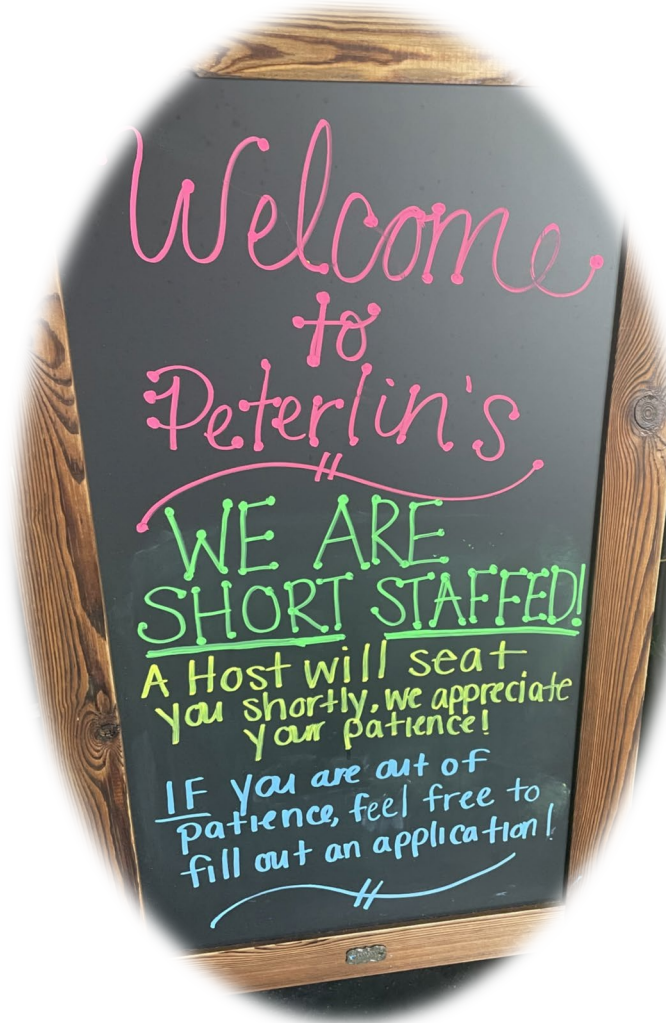 Welcome
to
Peterlin's
WE ARE
SHORT STAFFED!
A Host will seat
you shortly. we appreciate
your patience!
IF you are out of
patience, feel free to
fill out an application!